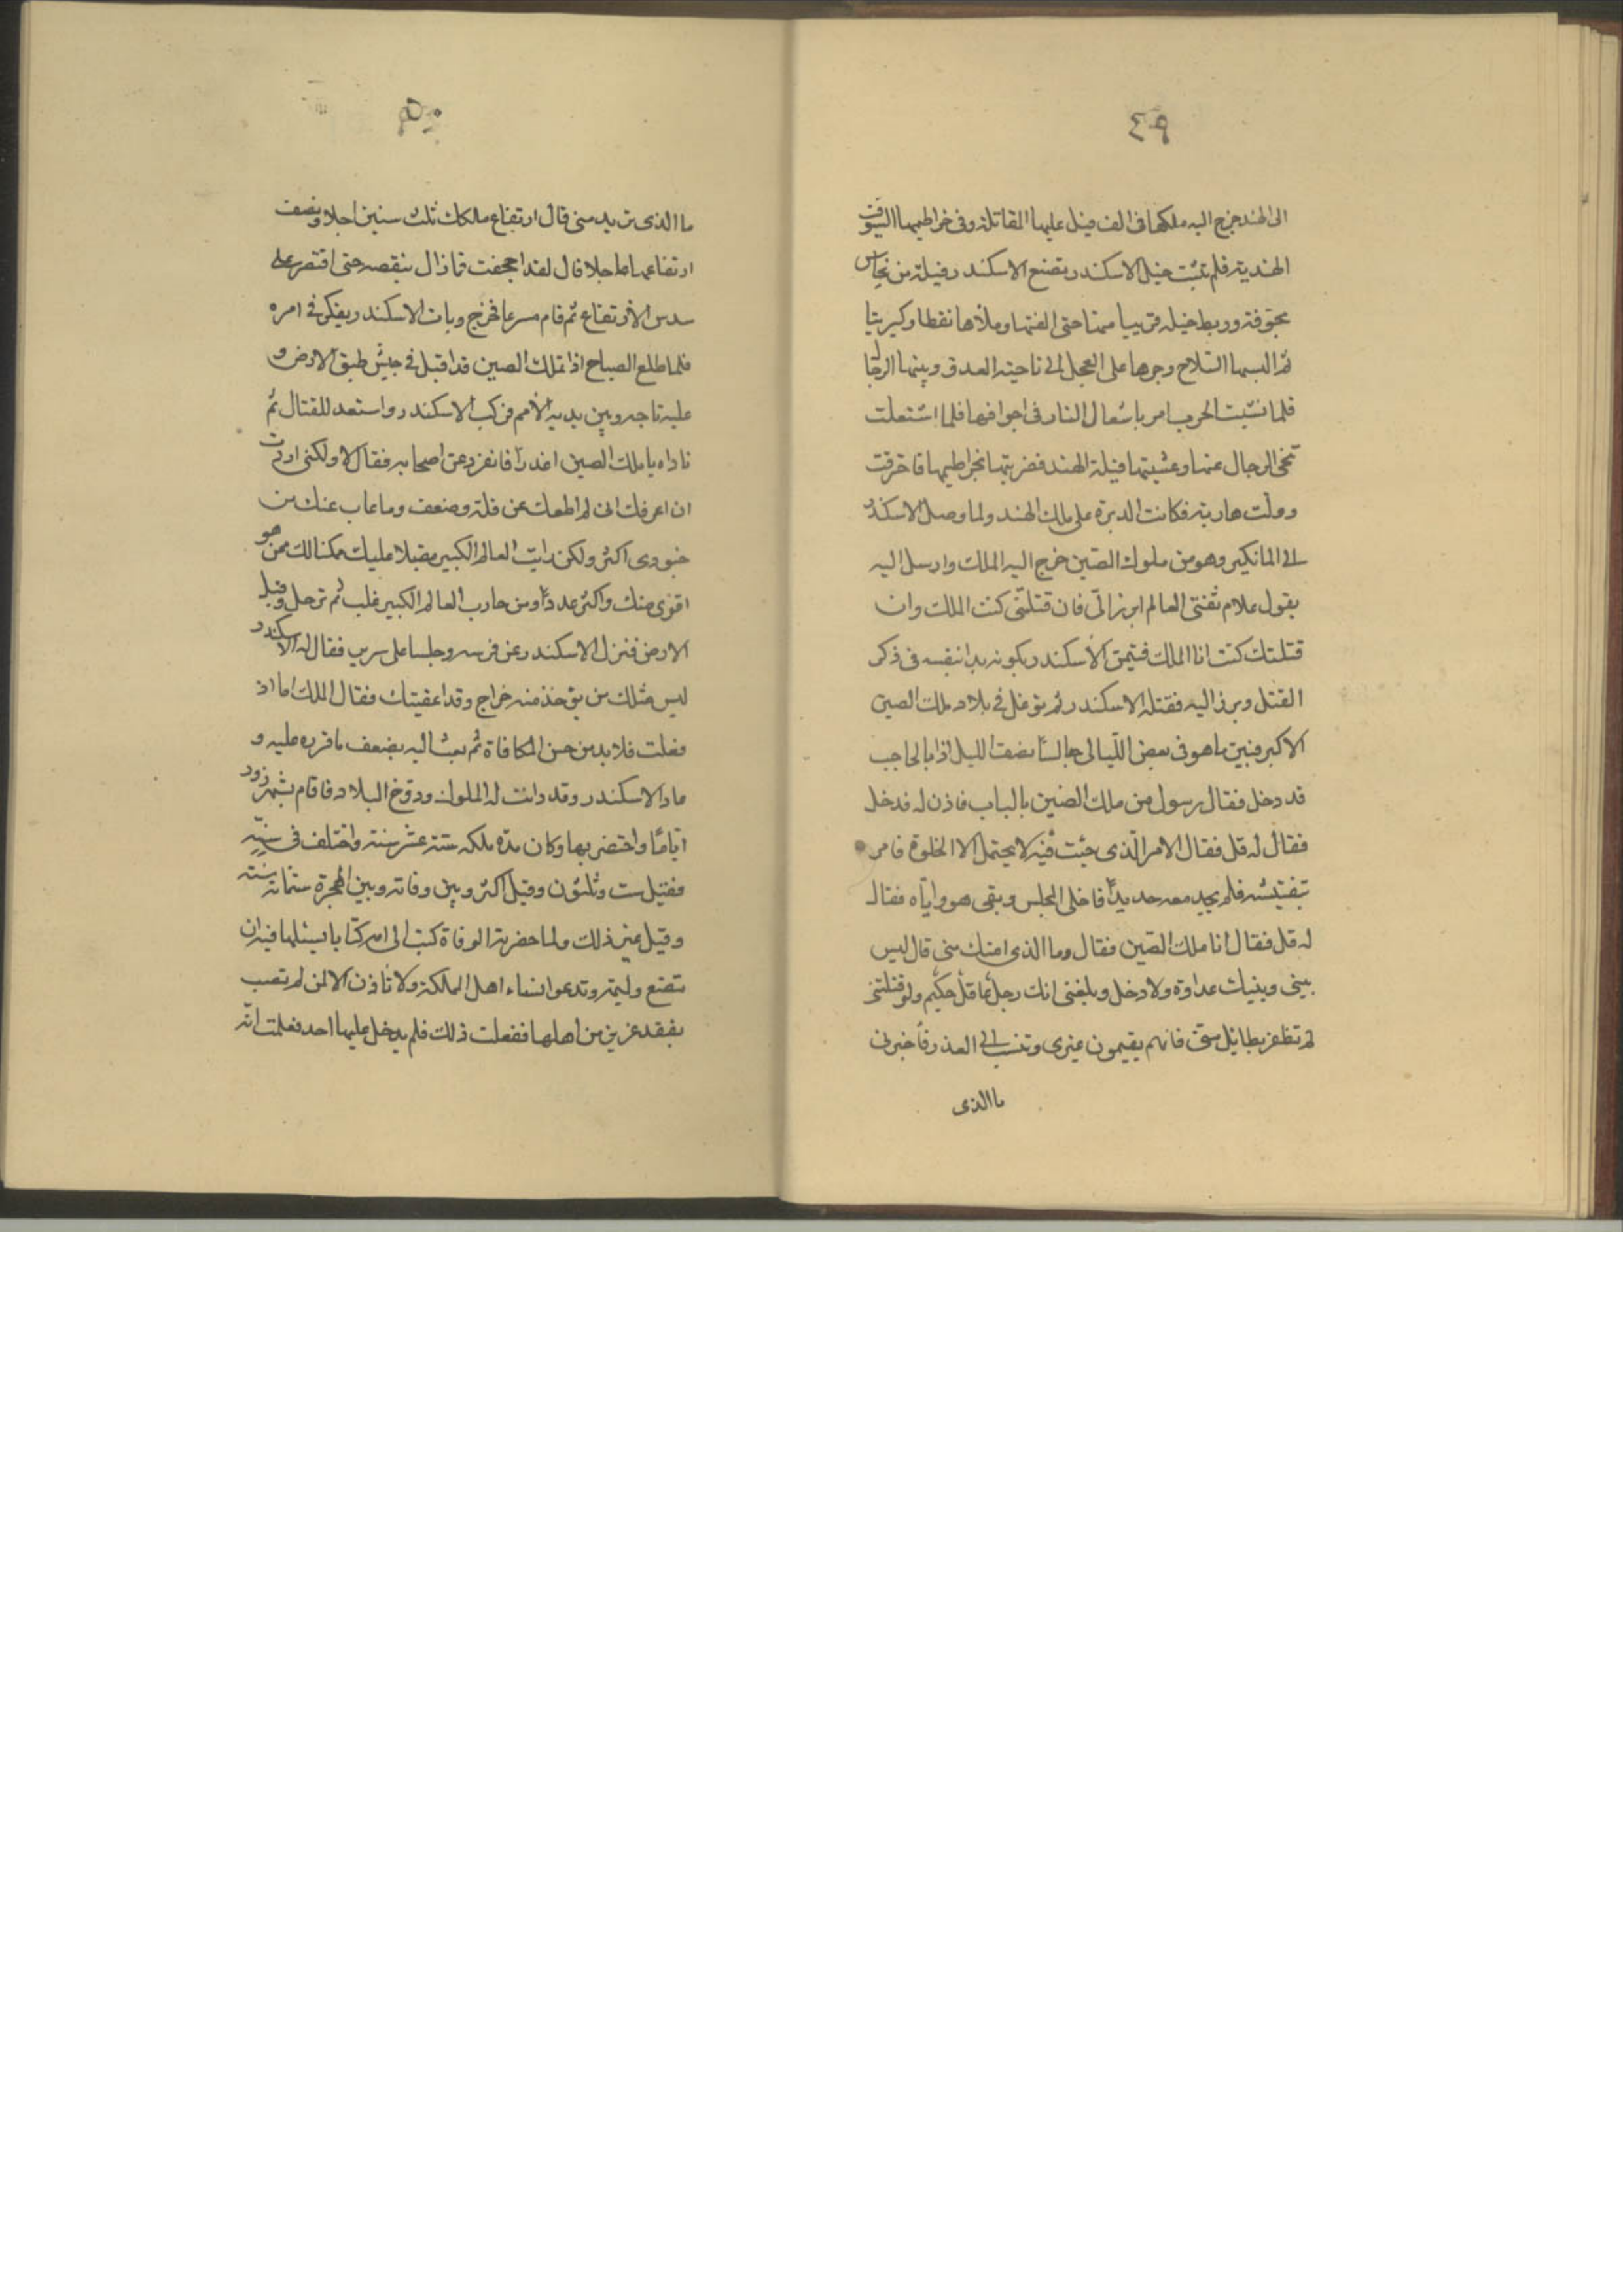 ٤٩
الى الهند خرج اليه ملكها فى الف فيل عليها المقاتلة وفى خراطيمها السيوف
الهندية فلم تثبت خيل الاسكندر فصنع الاسكندر فيلة من نحاس
مجوفة وربط خيله قريبا منها حتى الفتها وملأها نفطا وكبريتا
ثم البسها السلاح وجرها على العجل الى ناحية العدو وبينها الرجال
فلما نشبت الحرب امر باشعال النار فى اجوافها فلما اشتعلت
تنحى الرجال عنها وغشيتها فيلة الهند فضربتها بخراطيمها فاحترقت
وولت هاربة فكانت الدبرة على ملك الهند ولما وصل الاسكندر
الى المانكير وهو من ملوك الصين خرج اليه الملك وارسل اليه
يقول علام تفنى العالم ابرز الىّ فان قتلتنى كنت الملك وان
قتلتك كنت انا الملك فتيمن الاسكندر بكونه بدا بنفسه فى ذكر
القتل وبرز اليه فقتله الاسكندر ثم توغل فى بلاد ملك الصين
الاكبر فبين ما هو فى بعض الليالى جالسًا نصف الليل اذا بالحاجب
قد دخل فقال رسول من ملك الصين بالباب فاذن له فدخل
فقال له قل فقال الامر الّذى جئت فيه لا يحتمل الا الخلوة فامر
بتفتيشه فلم يجد معه حديدًا فاخلى المجلس وبقى هو وايّاه فقال
له قل فقال انا ملك الصين فقال وما الذى امنك منى قال ليس
بينى وبينك عداوة ولا دخل وبلغنى انك رجل عاقل حكيم ولو قتلتنى
لم تظفر بطائل منى فانهم يقيمون غيرى وتنسب الى الغدر فأخبرنى
ما الذى
٥٠
ما الذى تريد منى قال ارتفاع ملكك ثلث سنين اجلا ونصف
ارتفاعها عاجلا قال لقد اجحفت فما زال ينقصه حتى اقتصر على
سدس الارتفاع ثم قام مسرعا فخرج وبات الاسكندر يفكر فى امره
فلما طلع الصباح اذا بملك الصين قد اقبل فى جيش طبق الارض و
عليه تاجه وبين يديه الأمم فركب الاسكندر واستعد للقتال ثم
ناداه يا ملك الصين اغدرًا فانفرد عن اصحابه فقال لا ولكنى اردت
ان اعرفك انى لم اطعك عن قلة وضعف وما غاب عنك من
جنودى اكثر ولكن رايت العالم الكبير مقبلا عليك ممكنا لك ممن هو
اقوى منك واكثر عددًا ومن حارب العالم الكبير غلب ثم ترجل وقبل
الارض فنزل الاسكندر عن فرسه وجلسا على سرير فقال له الاسكندر
ليس مثلك من يؤخذ منه خراج وقد اعفيتك فقال الملك اما اذ
فعلت فلا بد من حسن المكافاة ثم بعث اليه بضعف ما قرره عليه و
عاد الاسكندر وقد دانت له الملوك ودوخ البلاد فاقام بشهرزور
ايّامًا واحتضر بها وكان مدّة ملكه ستة عشر سنة واختلف فى سنّه
فقيل ست وثلثون وقيل اكثر وبين وفاته وبين الهجرة ستمائة سنة
وقيل غير ذلك ولما حضرته الوفاة كتب الى امه كتابا يسئلها فيه ان
تصنع وليمة وتدعوا نساء اهل المملكة ولا تاذن الا لمن لم تصب
بفقد عزيز من اهلها ففعلت ذلك فلم يدخل عليها احد فعلمت انه